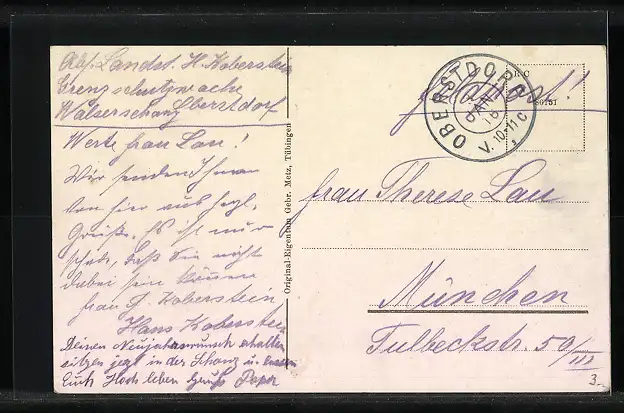 Abs. Landst. H. Koberstein
Grenzschutzwache
Walserschanz Oberstdorf
Werte Frau Lau!
Wir senden Ihnen
von hier aus herzl.
Grüße. Es ist nur
schade, daß Sie nicht
dabei sein können
Frau J. Koberstein
Hans Koberstein
Deinen Neujahrswunsch erhalten
sitzen jezt in der Schanz u. lassen
Euch Hoch leben Gruß Papa
Original-Eigentum Gebr. Metz, Tübingen
OBERSTDORF
V. 10-11
Feldpost!
Frau Therese Lau
München
Tulbeckstr. 50/III
3.-